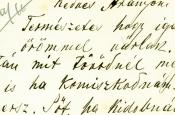 kedves Aranyom
Természetes hogy ige
örömmel várlak.
mit törődnél me
is ha komiszkodnám.
ersz. Sőt ha kidobnám